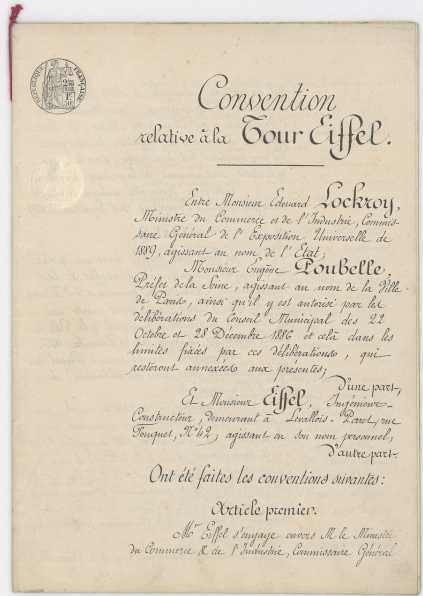 RÉPUBLIQUE FRANÇAISE
Convention
relative à la Tour Eiffel.
Entre Monsieur Edouard Lockroy,
Ministre du Commerce et de l'Industrie, Commis-
saire Général de l'Exposition Universelle de
1889, agissant au nom de l'Etat;
Monsieur Eugène Poubelle,
Préfet de la Seine, agissant au nom de la Ville
de Paris, ainsi qu'il y est autorisé par les
délibérations du Conseil Municipal des 22
Octobre et 28 Décembre 1886 et cela dans les
limites fixées par ces délibérations, qui
resteront annexées aux présentes;
D'une part,
Et Monsieur Eiffel, Ingénieur-
Constructeur, demeurant à Levallois-Perret, rue
Fouquet, N° 42, agissant en son nom personnel,
D'autre part.
Ont été faites les conventions suivantes:
Article premier.
Mr Eiffel s'engage envers M le Ministre
du Commerce & de l'Industrie, Commissaire Général